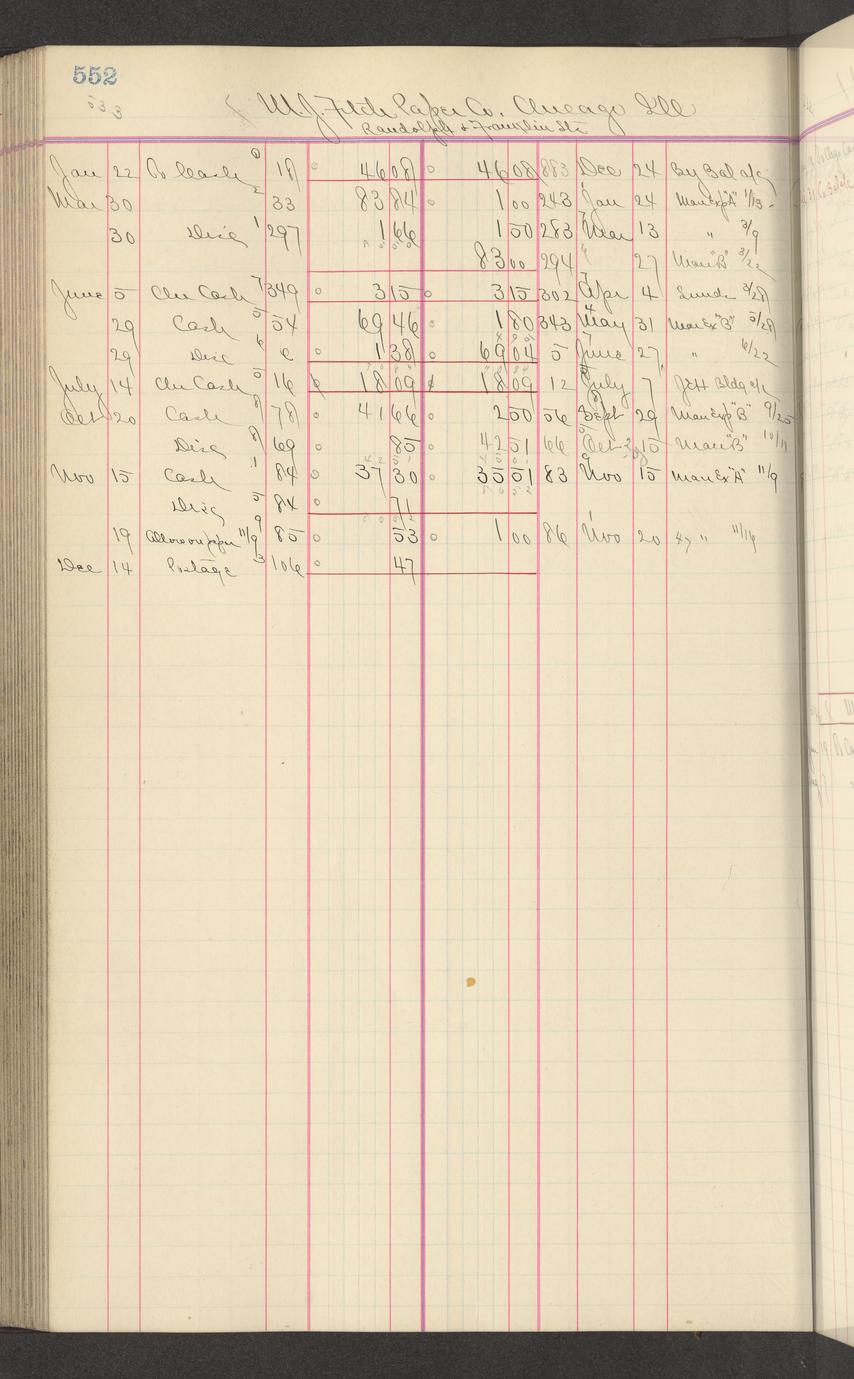 552
533
W.J. Fitch Paper Co. Chicago Ill
Randolph & Franklin Sts
Jan 22 To Cash 0 18 46 08 46 08 883 Dec 24 By Bal a/c
Mar 30 2 33 83 84 1 00 243 Jan 24 Man Exp "A" 1/13
30 Disc 1 297 1 66 1 50 283 Mar 13 " 3/9
83 00 294 " 27 Man "B" 3/22
June 5 Chi Cash 7 349 3 15 3 15 302 Apr 4 3/28
29 Cash 5 54 69 46 1 80 343 May 31 Man Ex "B" 5/28
29 Disc 6 6 1 38 69 04 5 June 27 " 6/22
July 14 Chi Cash 5 16 18 09 18 09 12 July 7 Bldg a/c
Oct 20 Cash 8 78 41 66 2 50 56 Sept 29 Man Exp "B" 9/25
Disc 8 69 85 42 51 66 Oct 15 Man "B" 10/11
42 51 45 01
Nov 15 Cash 1 84 37 30 35 51 83 Nov 15 Man Ex "A" 11/9
Disc 5 84 71
19 Allow on paper 11/9 9 85 53 1 00 86 Nov 20 " 11/16
Dec 14 Postage 3 106 47